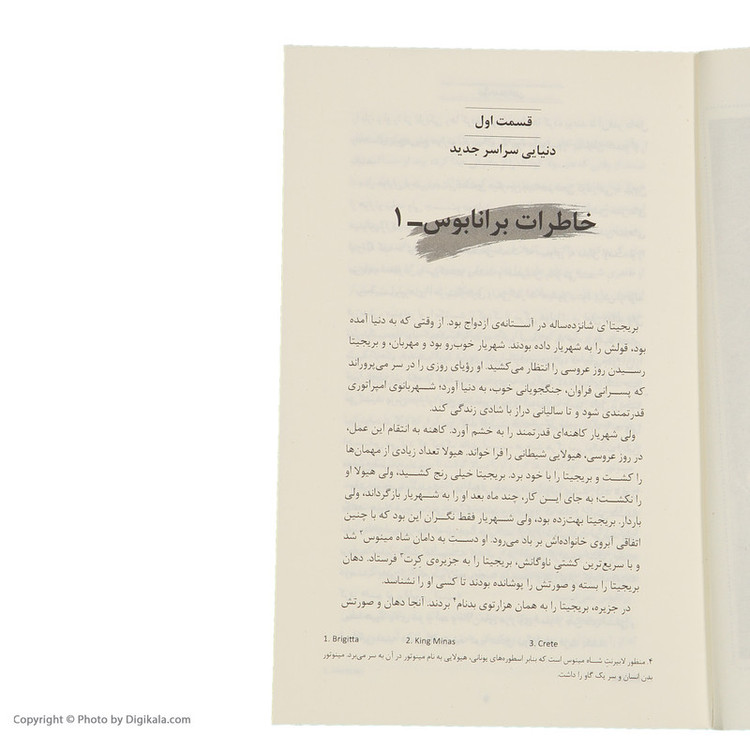 قسمت اول
دنیایی سراسر جدید
خاطرات برانابوس_ ۱
بریجیتا۱ی شانزده‌ساله در آستانه‌ی ازدواج بود. از وقتی که به دنیا آمده
بود، قولش را به شهریار داده بودند. شهریار خوب‌رو بود و مهربان، و بریجیتا
رسیدن روز عروسی را انتظار می‌کشید. او رؤیای روزی را در سر می‌پروراند
که پسرانی فراوان، جنگجویانی خوب، به دنیا آورد؛ شهربانوی امپراتوری
قدرتمندی شود و تا سالیانی دراز با شادی زندگی کند.
ولی شهریار کاهنه‌ای قدرتمند را به خشم آورد. کاهنه به انتقام این عمل،
در روز عروسی، هیولایی شیطانی را فرا خواند. هیولا تعداد زیادی از مهمان‌ها
را کشت و بریجیتا را با خود برد. بریجیتا خیلی رنج کشید، ولی هیولا او
را نکشت؛ به جای این کار، چند ماه بعد او را به شهریار بازگرداند، ولی
باردار. بریجیتا بهت‌زده بود، ولی شهریار فقط نگران این بود که با چنین
اتفاقی آبروی خانواده‌اش بر باد می‌رود. او دست به دامان شاه مینوس۲ شد
و با سریع‌ترین کشتیِ ناوگانش، بریجیتا را به جزیره‌ی کِرِت۳ فرستاد. دهان
بریجیتا را بسته و صورتش را پوشانده بودند تا کسی او را نشناسد.
در جزیره، بریجیتا را به همان هزارتوی بدنام۴ بردند. آنجا دهان و صورتش
1. Brigitta 2. King Minas 3. Crete
۴. منظور لابیرنت شاه مینوس است که بنابر اسطوره‌های یونانی، هیولایی به نام مینوتور در آن به سر می‌برد. مینوتور
بدن انسان و سر یک گاو را داشت.
Copyright © Photo by Digikala.com